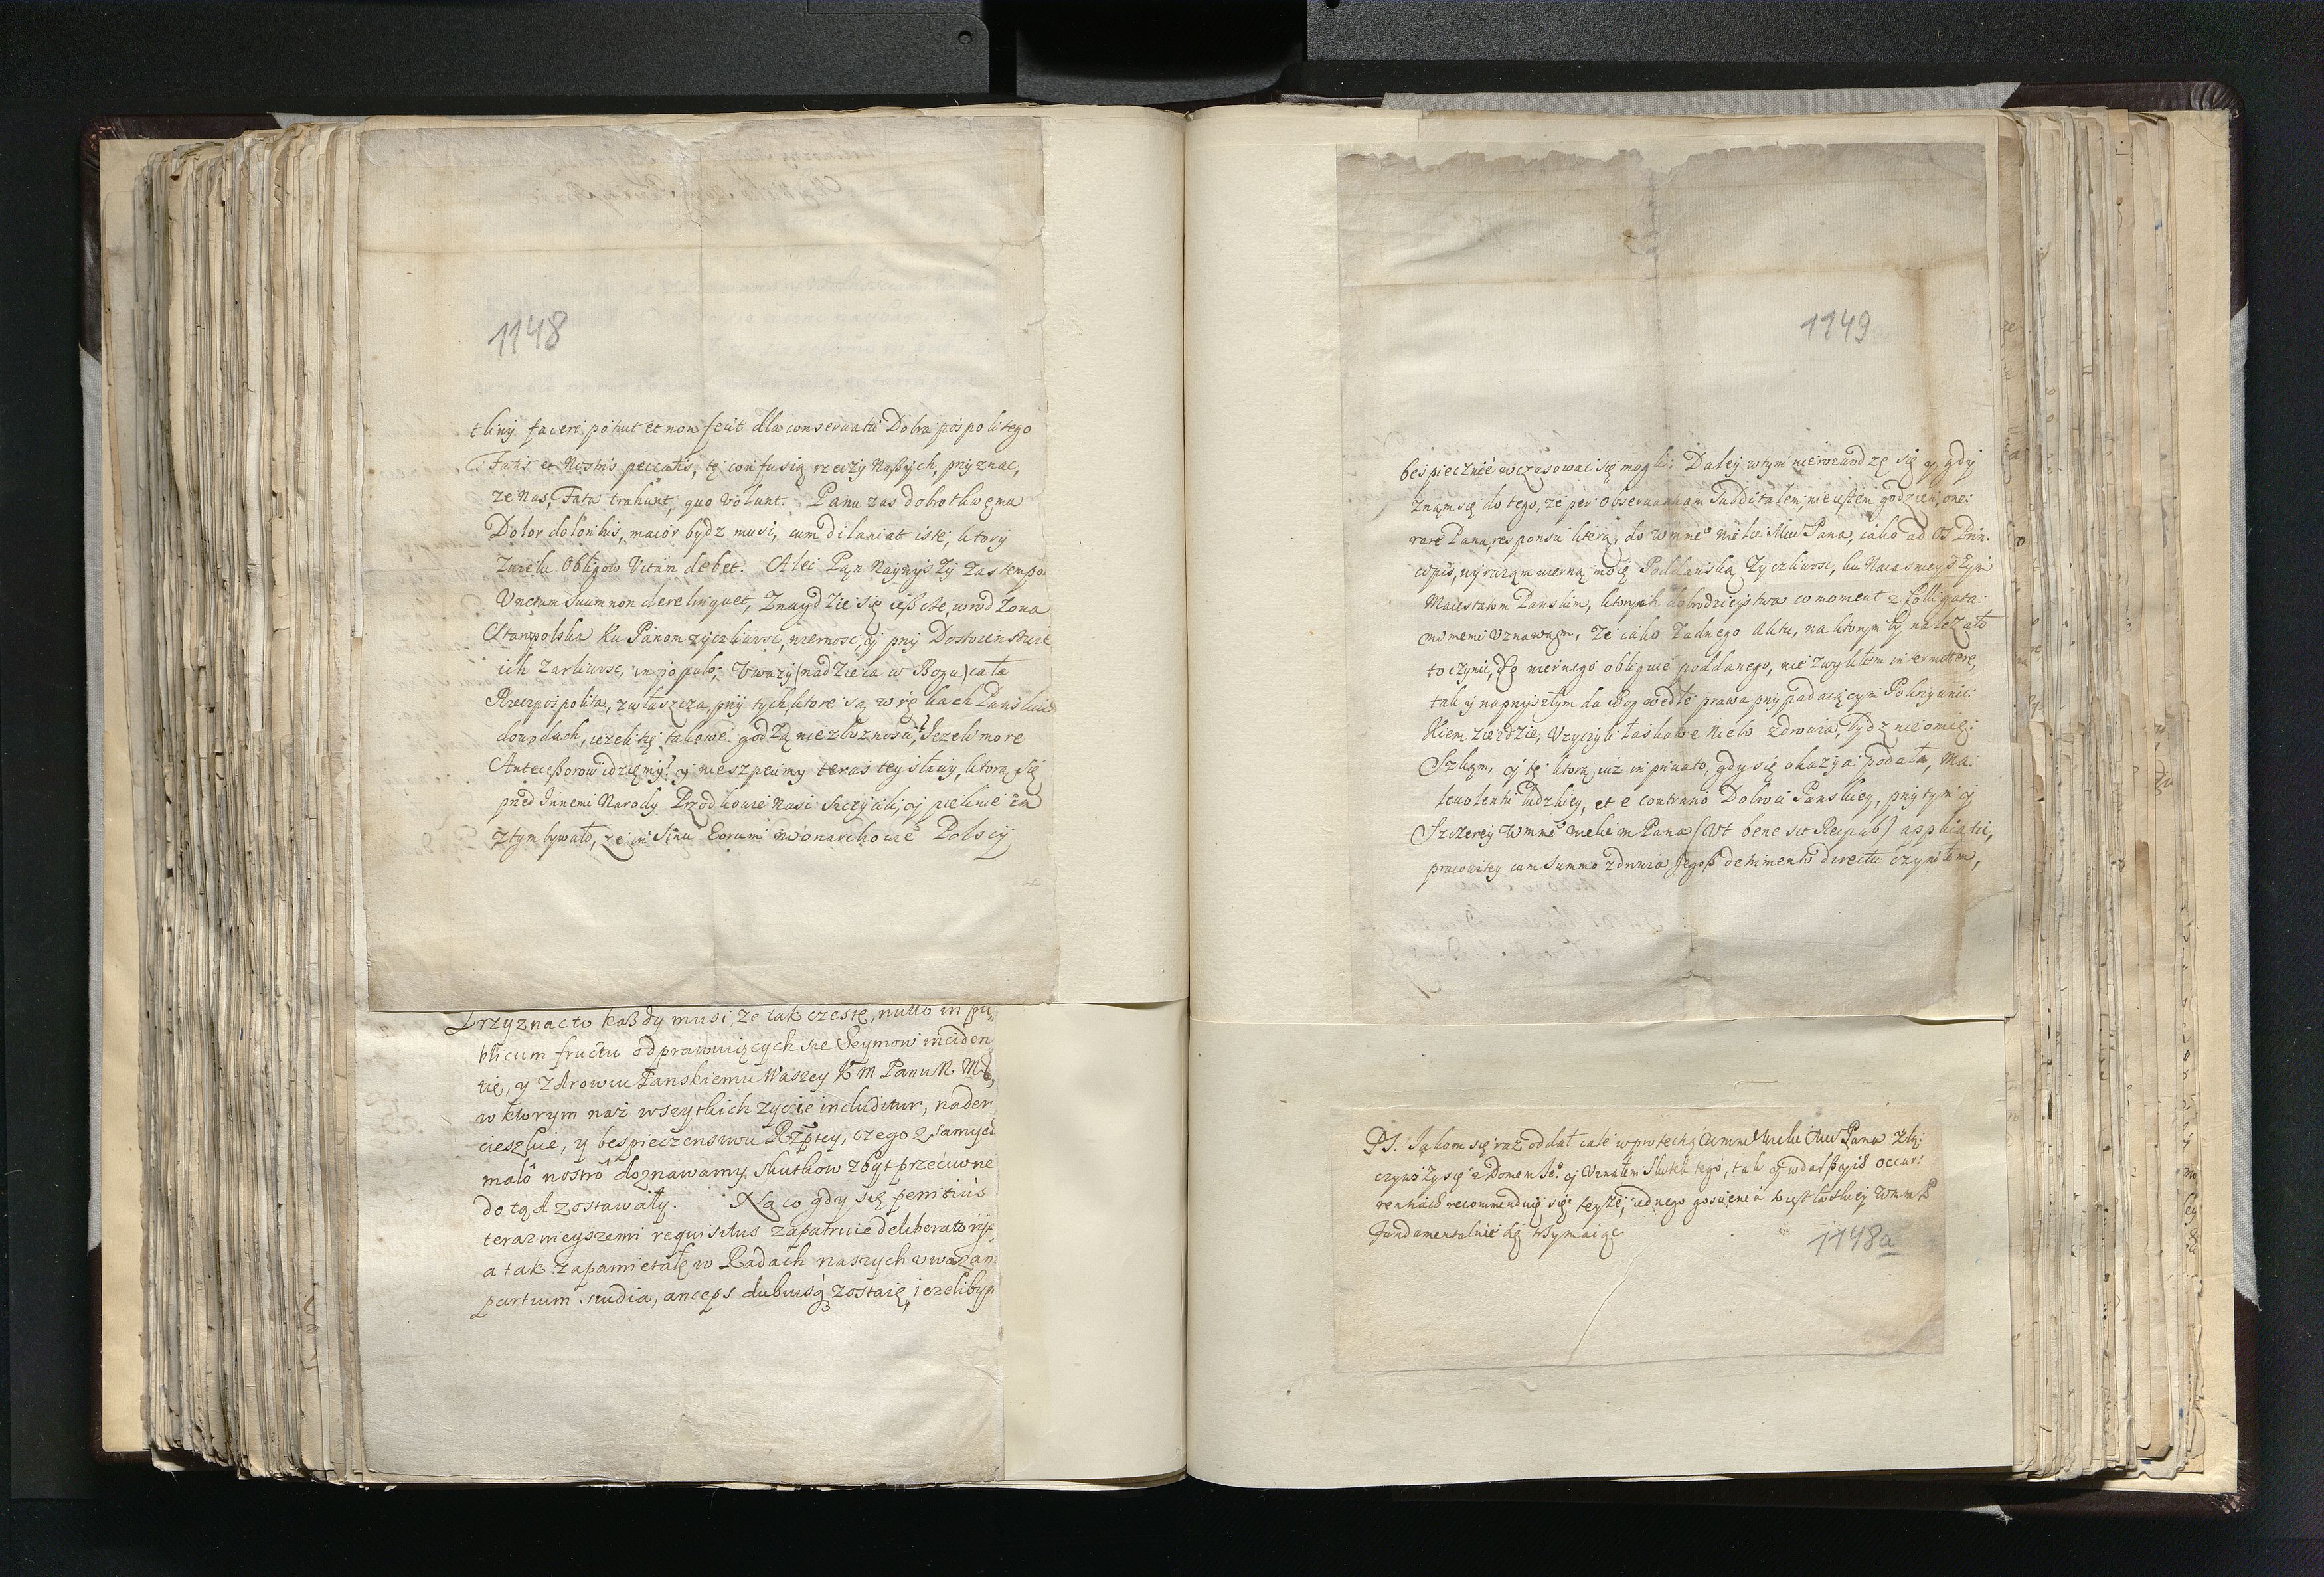 1148
tliny facere potuit et non fecit dla conservatii Dobra pospolitego
Fatis et Nostris peccatis, tę confusią rzeczy Naßych, przyznac,
ze nas, Fata trahunt, quo volunt. Panu zas dobrotliwemu
Dolor doloribus, maior bydz musi, cum dilaniat iste, ktory
Obligow Vitam debet. Alei Pan Naywyszy
Unctum suum non derelinquet, Znaydzie się ießcze, wrodzona
Staropolska Ku Panom zyczliwosc, wiernosc, y przy Dostoienstwie
ich zarliwosc, in populo; Uwazy (nadzieia w Bogu) cała
Rzeczpospolita, zwłaszcza, przy tych ktore są w rękach Panskich
ieżeli się takowe godzą niezboznosci, Jezeli more
Antecessorow idziemy? y nieszpecimy teras tey sławy, ktorą się
przed Innemi Narody Przodkowie Nasi szczycili, y pieknie im
ztym bywało, ze in sinu Eorum Monarchowie Polscy
Przyznac to kaßdy musi, ze tak częste, nullo in pu
blicum fructu odprawuiących sie Seymow inciden
tie, y zdrowiu Panskiemu Waszey KM Panu N. M.
w ktorym nas wszytkich zycie includitur, nader
cieszkie, y bespieczenstwu Rzptey, czego z samych
malo nostro doznawamy skutkow zbyt przeciwne
dotąd zostawały. Na co gdy się penitius
terazneyszemi requisitus zapatruie deliberatoryi,
a tak zapamietałe w Radach naszych uwazam
partium studia, anceps dubiusq zostaię, iezelibym
1149
bespiecznie wczasowac się mogli. Daley w tym nie rozwodzę się y gdy
znam się do tego, ze per observantiam Subditalem, nie iestem godzien, one:
rare Pana, responsu literą, do Wmme Wielce Mieo Pana, iako ad Os Prin:
cipis, wyrazam wierną moię Poddanską Zyczliwosc, ku Naiasnieyszym
Maiestatom Panskim, ktorych dobrodzieystwa co moment z Colligata:
mi memi Uznawam, Ze iako zadnego Aktu, na ktorym by nalezało
to czynic, do wiernego obliguie poddanego, nie zwykłem intermittere,
tak y na przyszłym da Bog wedle prawa przypadaiącym Pokrzywnic:
Kiem zieździe, Uzyczyli łaskawe Niebo zdrowia, bydz nie omię:
Szkam, y tę ktorą iuż in privato, gdy się okazya podała, Ma:
levolentii ludzkiey, et e contrario Dobroci Panskiey, przytym y
Szczerey Wmme Wielce m Pana (Ut bene sit Reipub) applicatii,
pracowitey cum summo zdrowia Jego detrimento directii czyniłem,
PS. Jakom się raz oddał cale w protectią Wmme Wielce Mieo Pana złą:
czywszy się z Domem Je° y Uznałem skutek tego, tak y w dalßych occur:
rentiach recommenduię się teyże, iednego goscienca iest łaskiey Wmme P
fundamentalnie się trzymaiąc
1148a